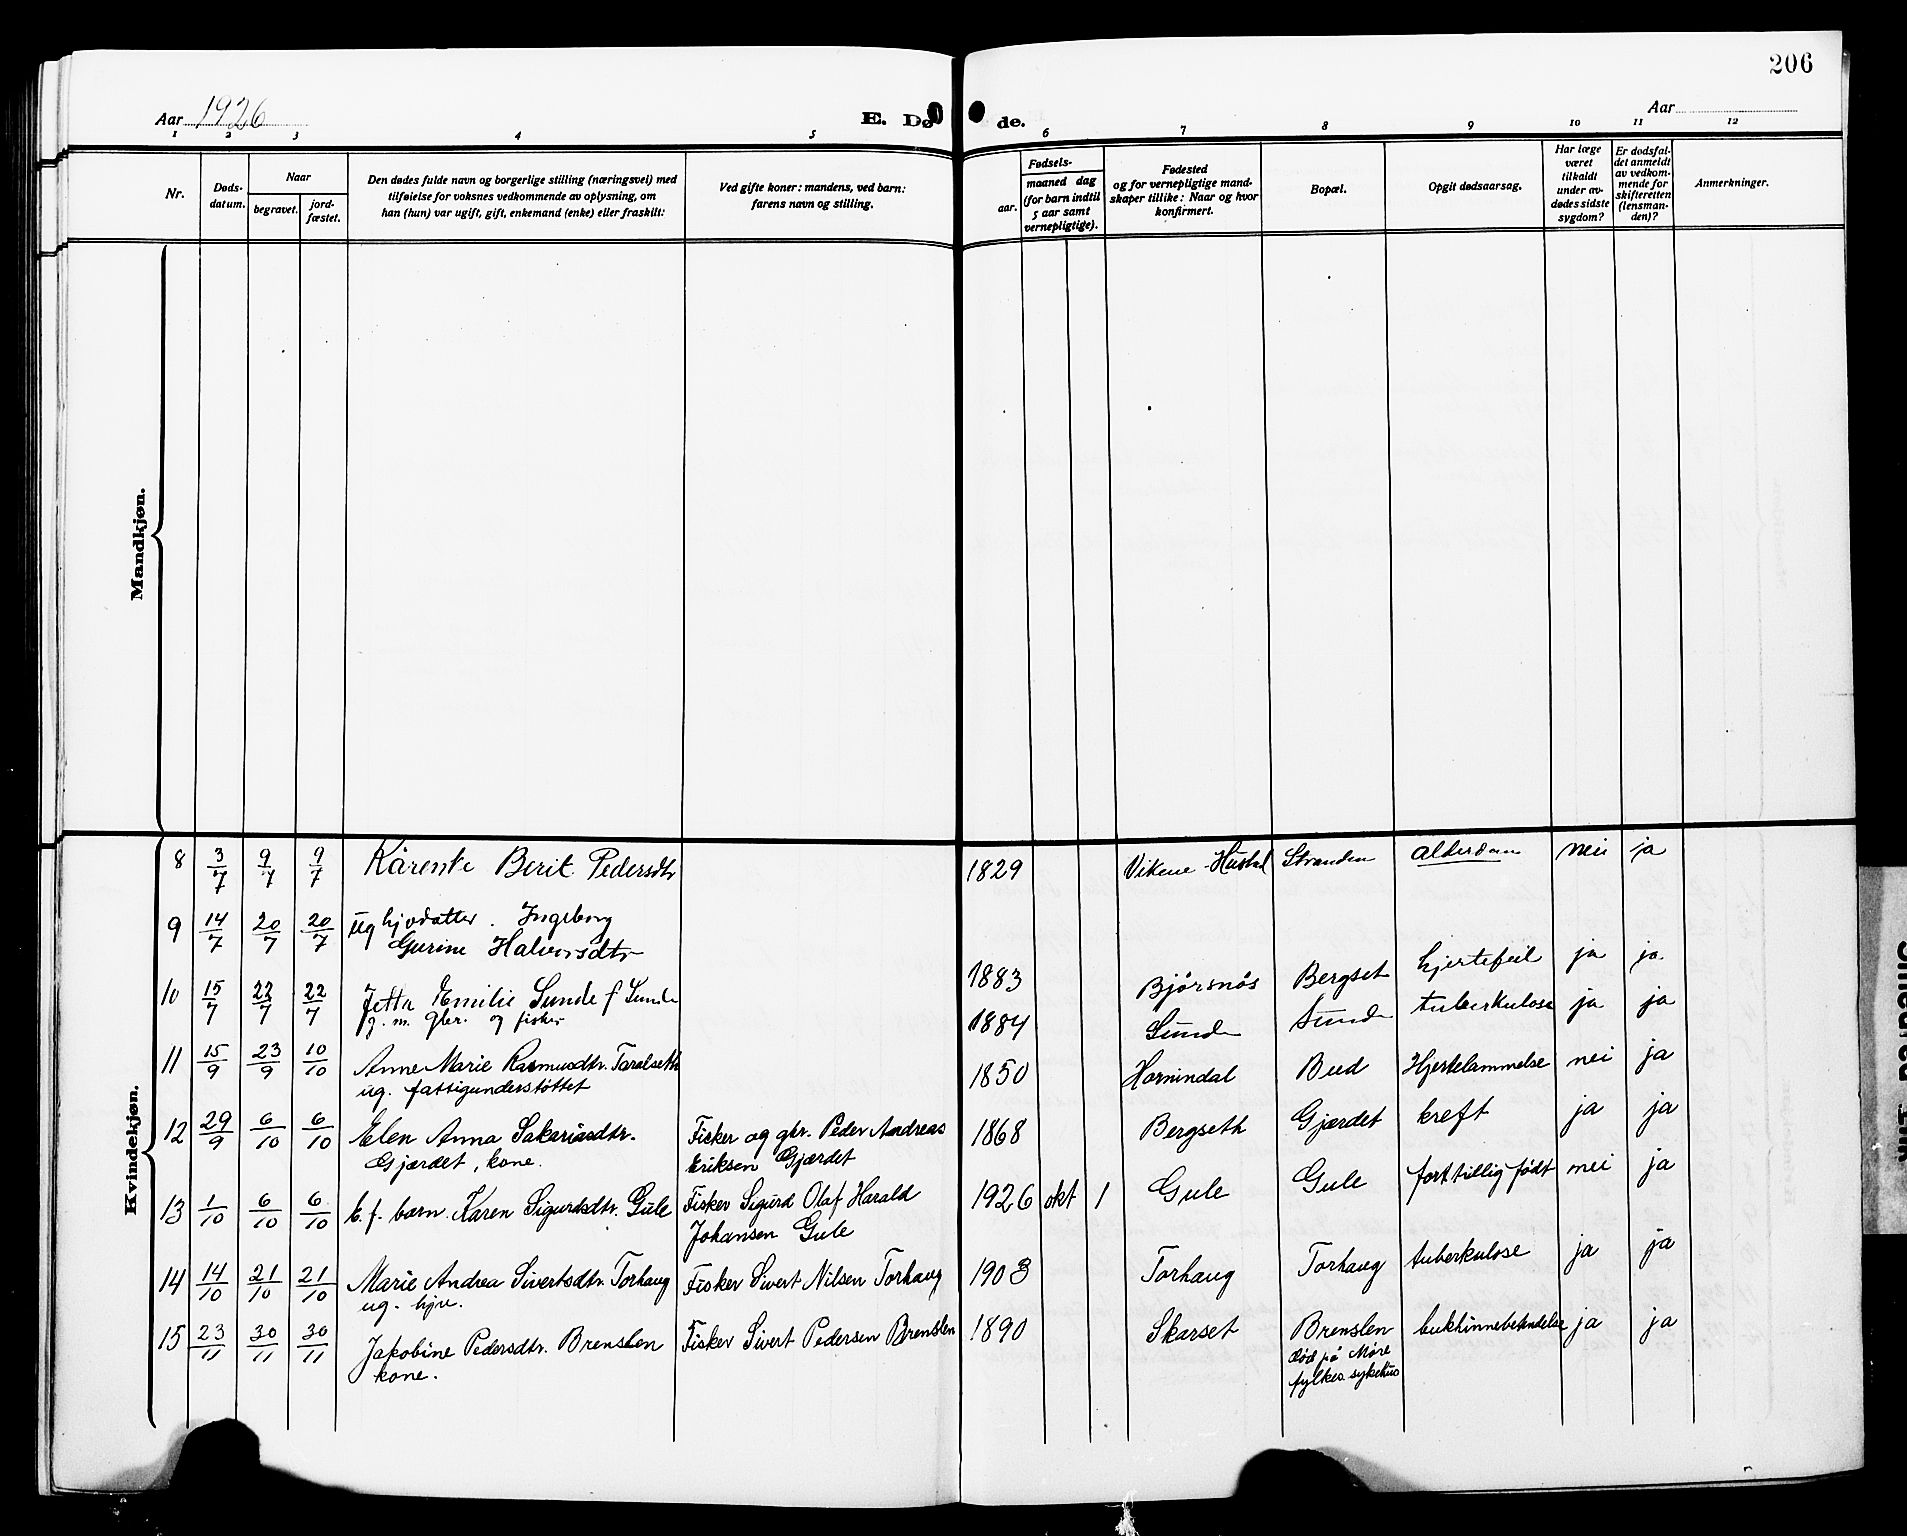 206
Aar 1926
E. Dø de.
Aar
1 2 3 4 5 6 7 8 9 10 11 12
Nr.
Døds-
datum.
Naar
begravet.
jord-
fæstet.
Den dødes fulde navn og borgerlige stilling (næringsvei) med
tilføielse for voksnes vedkommende av oplysning, om
han (hun) var ugift, gift, enkemand (enke) eller fraskilt:
Ved gifte koner: mandens, ved barn:
farens navn og stilling.
Fødsels-
aar.
maaned dag
(for barn indtil
5 aar samt
vernepligtige).
Fødested
og for vernepligtige mand-
skaper tillike: Naar og hvor
konfirmert.
Bopæl.
Opgit dødsaarsag.
Har læge
været
tilkaldt
under av-
dødes sidste
sygdom?
Er dødsfal-
det anmeldt
av vedkom-
mende for
skifteretten
(lensman-
den)?
Anmerkninger.
Mandkjøn.
Kvindekjøn.
8 3/7 9/7 9/7 Kårente Berit Pedersdtr 1829 Vikene Hustad Stranden alderdom nei ja
9 14/7 20/7 20/7 ug hjvdatter. Ingeborg
Gurine Halvorsdtr 1883 Bjørsnøs Bergset hjertefeil ja ja.
10 15/7 22/7 22/7 Jetta Emilie Sunde f Sunde 1884 Sunde Sunde tuberkulose ja ja
g. m. gbr. og fisker
11 15/9 23/9 10/10 Anne Marie Rasmusdtr. Taralseth 1850 Hornindal Bud Hjertelammelse nei ja
ug. fattigunderstøttet
12 29/9 6/10 6/10 Elen Anna Sakariasdtr. Fisker og gbr. Peder Andreas 1868 Bergseth Gjærdet kreft ja ja
Gjærdet, kone. Eriksen Gjærdet
13 1/10 6/10 6/10 E. f. barn. Karen Sigurdsdtr. Gule Fisker Sigurd Olaf Harald 1926 okt 1 Gule Gule for tillig født nei ja
Johansen Gule
14 14/10 21/10 21/10 Marie Andrea Sivertsdtr. Torhaug Fisker Sivert Nilsen Torhaug 1903 Torhaug Torhaug tuberkulose ja ja
ug. hjv.
15 23/11 30/11 30/11 Jakobine Pedersdtr. Brenslen Fisker Sivert Pedersen Brenslen 1890 Skarset Brenslen bukhinnebetendelse ja ja
kone. død på Møre
fylkes sykehus